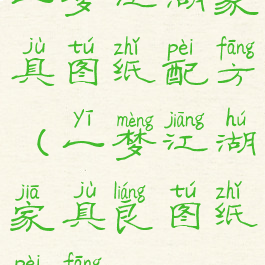 一梦江湖家
jù tú zhǐ pèi fāng
具图纸配方
yī mèng jiāng hú
（一梦江湖
jiā jù liáng tú zhǐ
家具良图纸
pèi fāng